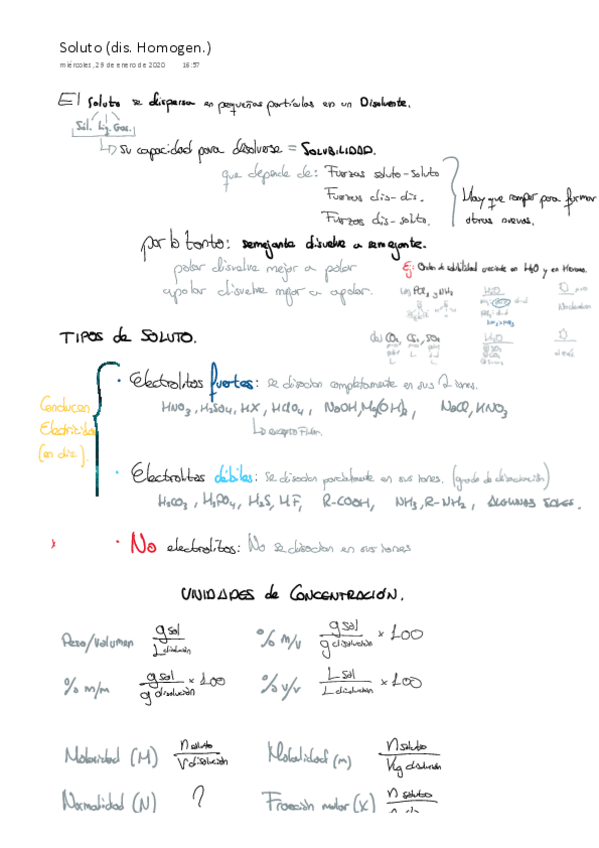 Soluto (dis. Homogen.)
miércoles, 29 de enero de 2020 16:57
El soluto se dispersa en pequeñas partículas en un Disolvente.
Sól. Líq. Gas.
Su capacidad para disolverse = SOLUBILIDAD.
que depende de: Fuerzas soluto-soluto
Fuerzas dis-dis.
Fuerzas dis-solto.
Hay que romper para formar
otras nuevas.
por lo tanto: semejante disuelve a semejante.
polar disuelve mejor a polar
apolar disuelve mejor a apolar.
Ej: Orden de solubilidad creciente en H2O y en Hexano.
PCl3 y NH3
H2O
H2O
TIPOS de SOLUTO.
Conducen
Electricidad
(en dis).
· Electrolitos fuertes: se disocian completamente en sus 2 iones.
HNO3, H2SO4, HX, HClO4, NaOH, Mg(OH)2, NaCl, KNO3
excepto F
· Electrolitos débiles: se disocian parcialmente en sus iones. (grado de disociación)
H2CO3, H3PO4, H2S, HF, R-COOH, NH3, R-NH2, ALGUNAS SALES.
· No electrolitos: No se disocian en sus iones
UNIDADES de CONCENTRACIÓN.
Peso/Volumen g sol / L disolución
% m/v g sol / g disolución × 100
% m/m g sol / g disolución × 100
% v/v L sol / L disolución × 100
Molaridad (M) n soluto / V disolución
Molalidad (m) n soluto / Kg disolución
Normalidad (N) ?
Fracción molar (X) n soluto